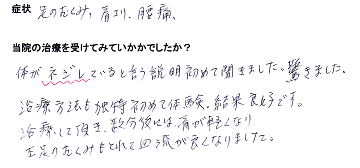 症状 足のむくみ、肩コリ、腰痛、
当院の治療を受けてみていかかでしたか？
体がネジレていると言う説明初めて聞きました。驚きました。
治療方法も独特初めて体験、結果良好です。
治療して頂き、数分後には、肩が軽くなり
左足のむくみもとれて血流が良くなりました。